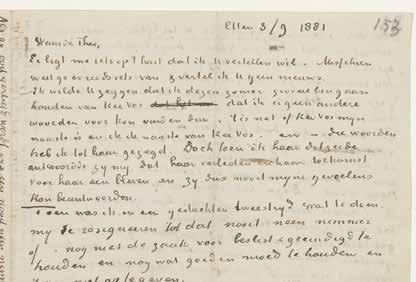 Etten 3/9 1881
153
Waarde Theo,
Er ligt me iets op 't hart dat ik U vertellen wil. Misschien
weet ge er reeds iets van & vertel ik U geen nieuws.
Ik wilde U zeggen dat ik dezen zomer zooveel ben gaan
houden van Kee Vos dat ik er geen andere
woorden voor kon vinden dan "'t is net of Kee Vos mijn
naaste is en ik de naaste van Kee Vos" en – die woorden
heb ik tot haar gezegd. Doch toen ik haar dit zeide
antwoordde zy my dat haar verleden en haar toekomst
voor haar een bleven en zy dus nooit myne gevoelens
kon beantwoorden.
Toen was ik in een geduchten tweestryd wat te doen.
my te resigneeren tot dat nooit neen nimmer
of – nog niet de zaak voor beslist & geeindigd te
houden en nog wat goeden moed te houden en
nog niet op te geven.